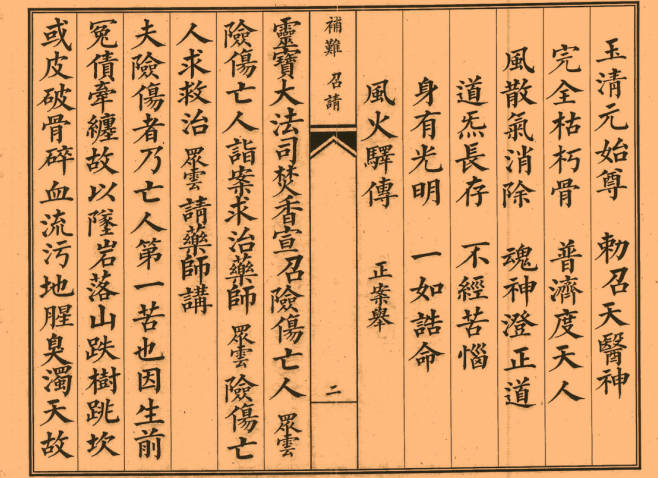 玉清元始尊　勅召天醫神
完全枯朽骨　普濟度天人
風散氣消除　魂神澄正道
道炁長存　不經苦惱
身有光明　一如誥命
風火驛傳　正案舉
補難　召請　二
靈寶大法司焚香宣召險傷亡人眾雲
險傷亡人詣案求治藥師眾雲險傷亡
人求救治眾雲請藥師講
夫險傷者乃亡人第一苦也因生前
冤債牽纏故以墜岩落山跌樹跳坎
或皮破骨碎血流污地腥臭濁天故